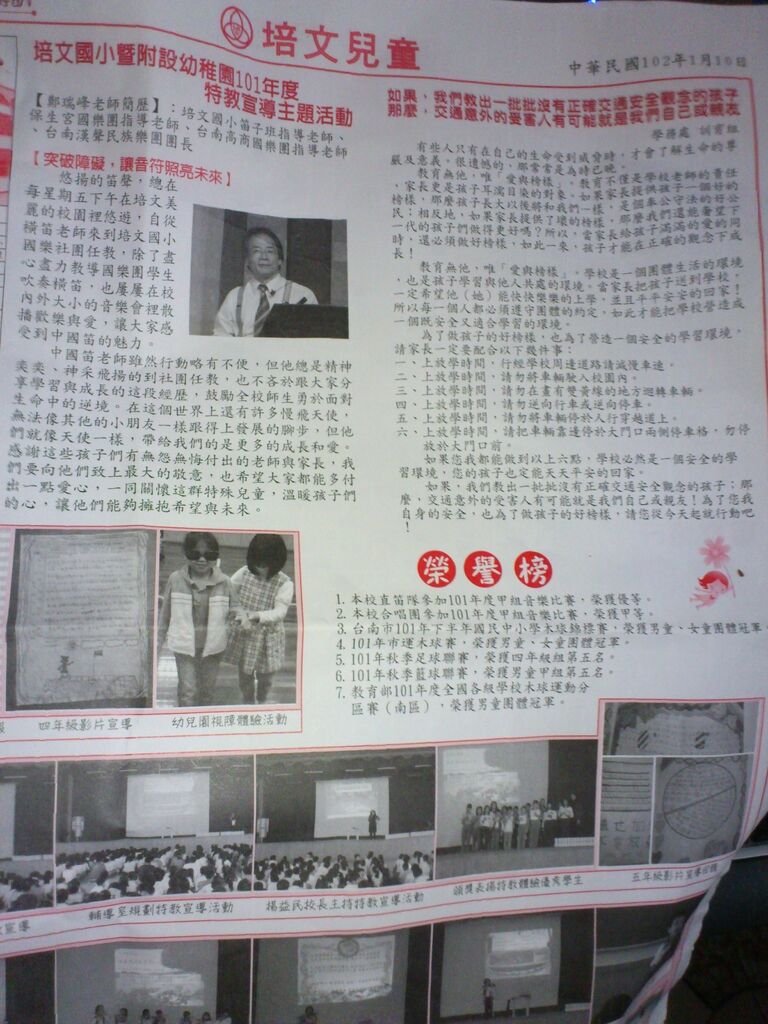 培文兒童
中華民國102年1月10日
培文國小暨附設幼稚園101年度
特教宣導主題活動
【鄭瑞峰老師簡歷】：培文國小笛子班指導老師、
保生宮國樂團指導老師、台南高商國樂團指導老師
、台南漢聲民族樂團團長
【突破障礙，讓音符照亮未來】
悠揚的笛聲，總在
每星期五下午在培文美
麗的校園裡悠遊，自從
橫笛老師來到培文國小
國樂社團任教，除了盡
心盡力教導國樂團學生
吹奏橫笛，也屢屢在校
內外大小的音樂會裡散
播歡樂與愛，讓大家感
受到中國笛的魅力。
中國笛老師雖然行動略有不便，但他總是精神
奕奕、神采飛揚的到社團任教，也不吝於跟大家分
享學習與成長的這段經歷，鼓勵全校師生勇於面對
生命中的逆境。在這個世界上還有許多慢飛天使，
無法像其他的小朋友一樣跟得上發展的腳步，但他
們就像天使一樣，帶給我們的是更多的成長和愛。
感謝這些孩子們有無怨無悔付出的老師與家長，我
們要向他們致上最大的敬意，也希望大家都能多付
出一點愛心，一同關懷這群特殊兒童，溫暖孩子們
的心，讓他們能夠擁抱希望與未來。
如果，我們教出一批批沒有正確交通安全觀念的孩子
那麼，交通意外的受害人有可能就是我們自己或親友
學務處 訓育組
有些人只有在自己的生命受到威脅時，才會了解生命的尊
嚴及意義，很遺憾的，那常常是為時已晚。
教育無他，唯「愛與榜樣」。教育不僅是學校老師的責任
，家長更是孩子耳濡目染的對象。如果家長提供孩子一個好的
榜樣，那麼孩子長大以後將和我們一樣，是個奉公守法的好公
民；相反地，如果家長提供了壞的榜樣，那麼我們還能奢望下
一代的孩子們做得更好嗎？所以，當家長給孩子滿滿的愛的同
時，還必須做好榜樣，如此一來，孩子才能在正確的觀念下成
長！
教育無他，唯「愛與榜樣」。學校是一個團體生活的環境
，也是孩子學習與他人共處的環境。當家長把孩子送到學校，
一定希望他（她）能快快樂樂的上學，並且平平安安的回家！
所以每一個人都必須遵守團體的約定，如此才能把學校營造成
一個既安全又適合學習的環境。
為了做孩子的好榜樣，也為了營造一個安全的學習環境，
請家長一定要配合以下幾件事：
一、上放學時間，行經學校周邊道路請減慢車速。
二、上放學時間，請勿將車輛駛入校園內。
三、上放學時間，請勿在畫有雙黃線的地方迴轉車輛。
四、上放學時間，請勿逆向行車或逆向停車。
五、上放學時間，請勿將車輛停於人行穿越道上。
六、上放學時間，請把車輛靠邊停於大門口兩側停車格，勿停
放於大門口前。
如果您我都能做到以上六點，學校必然是一個安全的學
習環境，您的孩子也定能天天平安的回家。
如果，我們教出一批批沒有正確交通安全觀念的孩子；那
麼，交通意外的受害人有可能就是我們自己或親友！為了您我
自身的安全，也為了做孩子的好榜樣，請您從今天起就行動吧
！
榮譽榜
1. 本校直笛隊參加101年度甲組音樂比賽，榮獲優等。
2. 本校合唱團參加101年度甲組音樂比賽，榮獲甲等。
3. 台南市101年下半年國民中小學木球錦標賽，榮獲男童、女童團體冠軍
4. 101年市運木球賽，榮獲男童、女童團體冠軍。
5. 101年秋季足球聯賽，榮獲四年級組第五名。
6. 101年秋季籃球聯賽，榮獲男童甲組第五名。
7. 教育部101年度全國各級學校木球運動分
區賽（南區），榮獲男童團體冠軍。
四年級影片宣導
幼兒園視障體驗活動
宣導
輔導室規劃特教宣導活動
楊益民校長主持特教宣導活動
頒獎表揚特教體驗優秀學生
五年級影片宣導